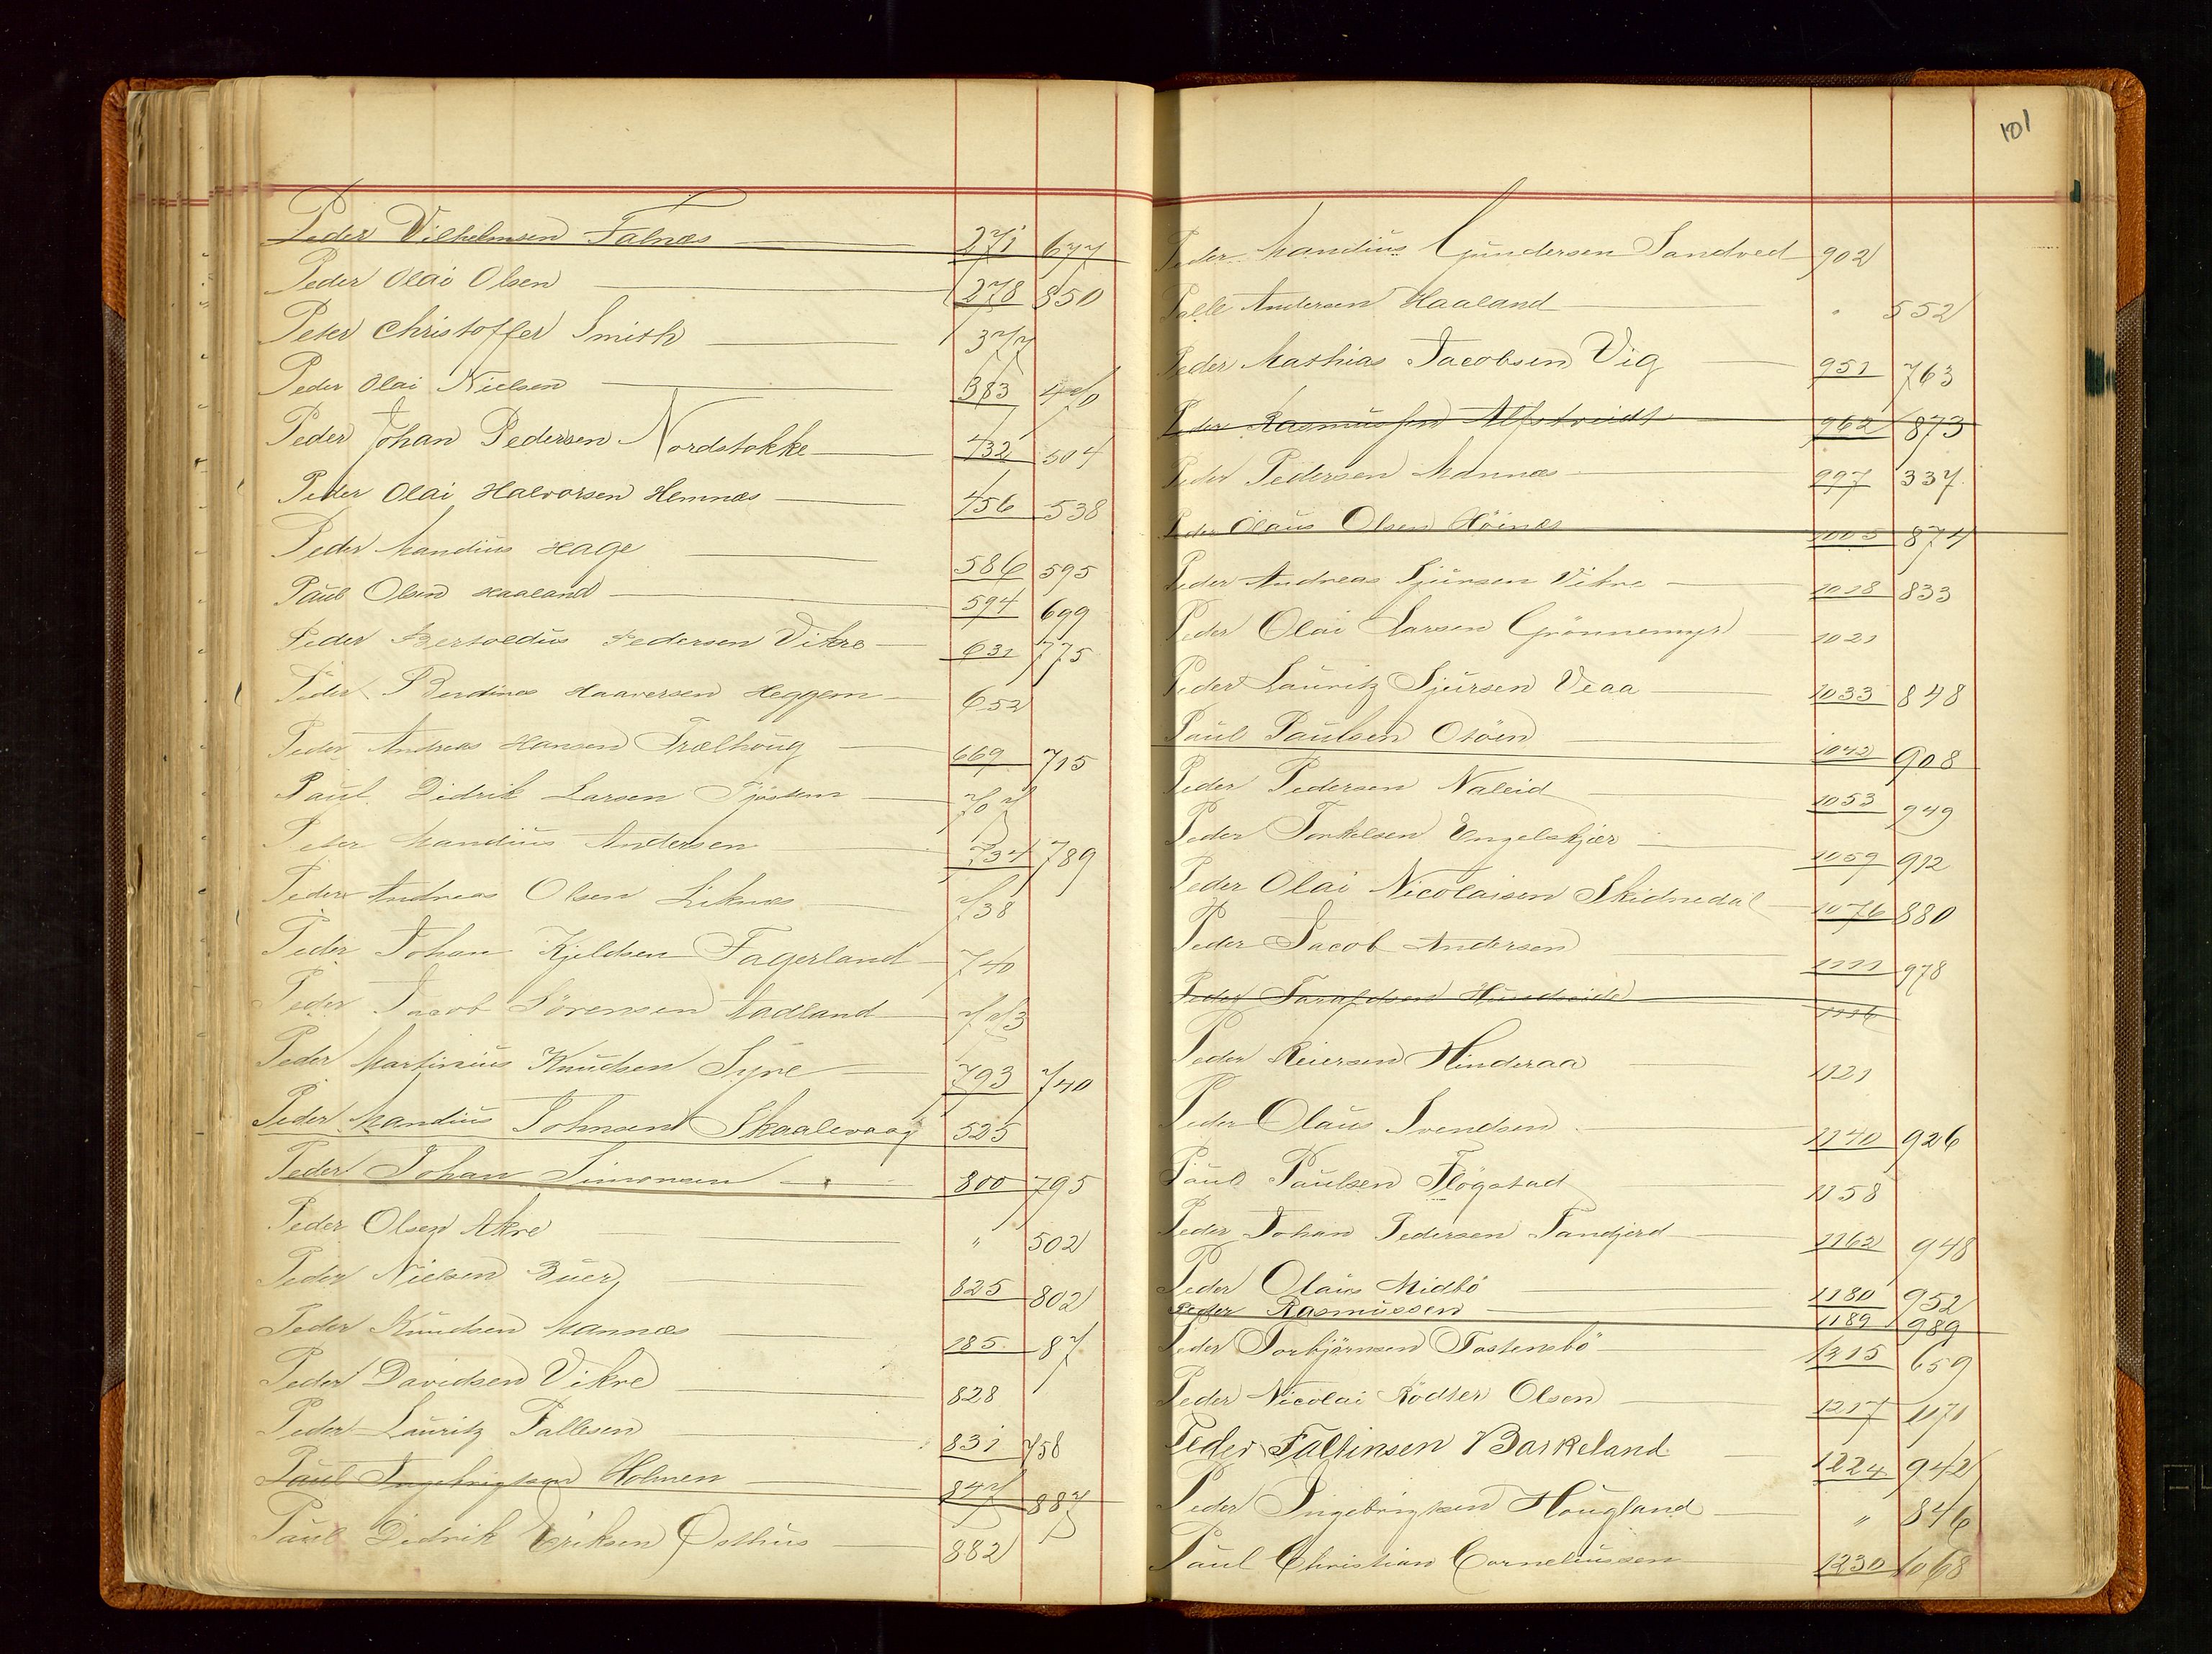 Peder Vilhelmsen Falnæs 271 677
Peder Olai Olsen 278 850
Peter Christoffer Smith 377
Peder Olai Nielsen 383 470
Peder Johan Pedersen Nordstokke 432 504
Peder Olai Halvorsen Hemnæs 456 538
Peder Mandius Hage 586 595
Paul Olsen Haaland 594 699
Peder Bertoldus Pedersen Vikre 631 775
Peder Berdines Haaversen Heggem 652
Peder Andreas Hansen Trælhoug 669 715
Paul Didrik Larsen Tjøstem 707
Peter Mandius Andersen 734 789
Peder Andreas Olsen Liknæs 738
Peder Johan Kjeldsen Fagerland 740
Peder Jacob Sörensen Aadland 773
Peder Martinius Knudsen Syre 793 740
Peder Mandius Johnsen Skaalevaag 525
Peder Johan Simonsen 800 795
Peder Olsen Akre " 502
Peder Nielsen Buer 825 802
Peder Knudsen Mannæs 185 87
Peder Davidsen Vikre 828
Peder Lauritz Fallesen 831 758
Paul Ingebrigtsen Holmen 847 887
Paul Didrik Eriksen Østhus 882
101
Peder Mandius Gundersen Sandved 902
Palle Andersen Haaland " 552
Peder Mathias Jacobsen Vig 951 763
Peder Rasmussen Alfstveidt 962 873
Peder Pedersen Mannæs 997 337
Peder Olaus Olsen Höinæs 1005 874
Peder Andreas Sjursen Vikre 1018 833
Peder Olai Larsen Grönnemyr 1021
Peder Lauritz Sjursen Veaa 1033 848
Paul Paulsen Osöen 1042 908
Peder Pedersen Naleid 1053 949
Peder Torkelsen Engelskjær 1059 912
Peder Olai Nicolaisen Skidnedal 1076 880
Peder Jacob Andersen 1111 978
Peder Taraldsen Hundseid 1116
Peder Reiersen Hinderaa 1121
Peder Olaus Svendsen 1140 926
Paul Paulsen Fløgstad 1158
Peder Johan Pedersen Tandjerd 1162 948
Peder Olaus Midbö 1180 952
Peder Rasmussen 1189 989
Peder Torbjørnsen Tostensbö 1215 659
Peder Nicolai Rödser Olsen 1217 1171
Peder Faltinsen Barkeland 1224 942
Peder Ingebrigtsen Hougland " 846
Paul Christian Corneliussen 1230 1068